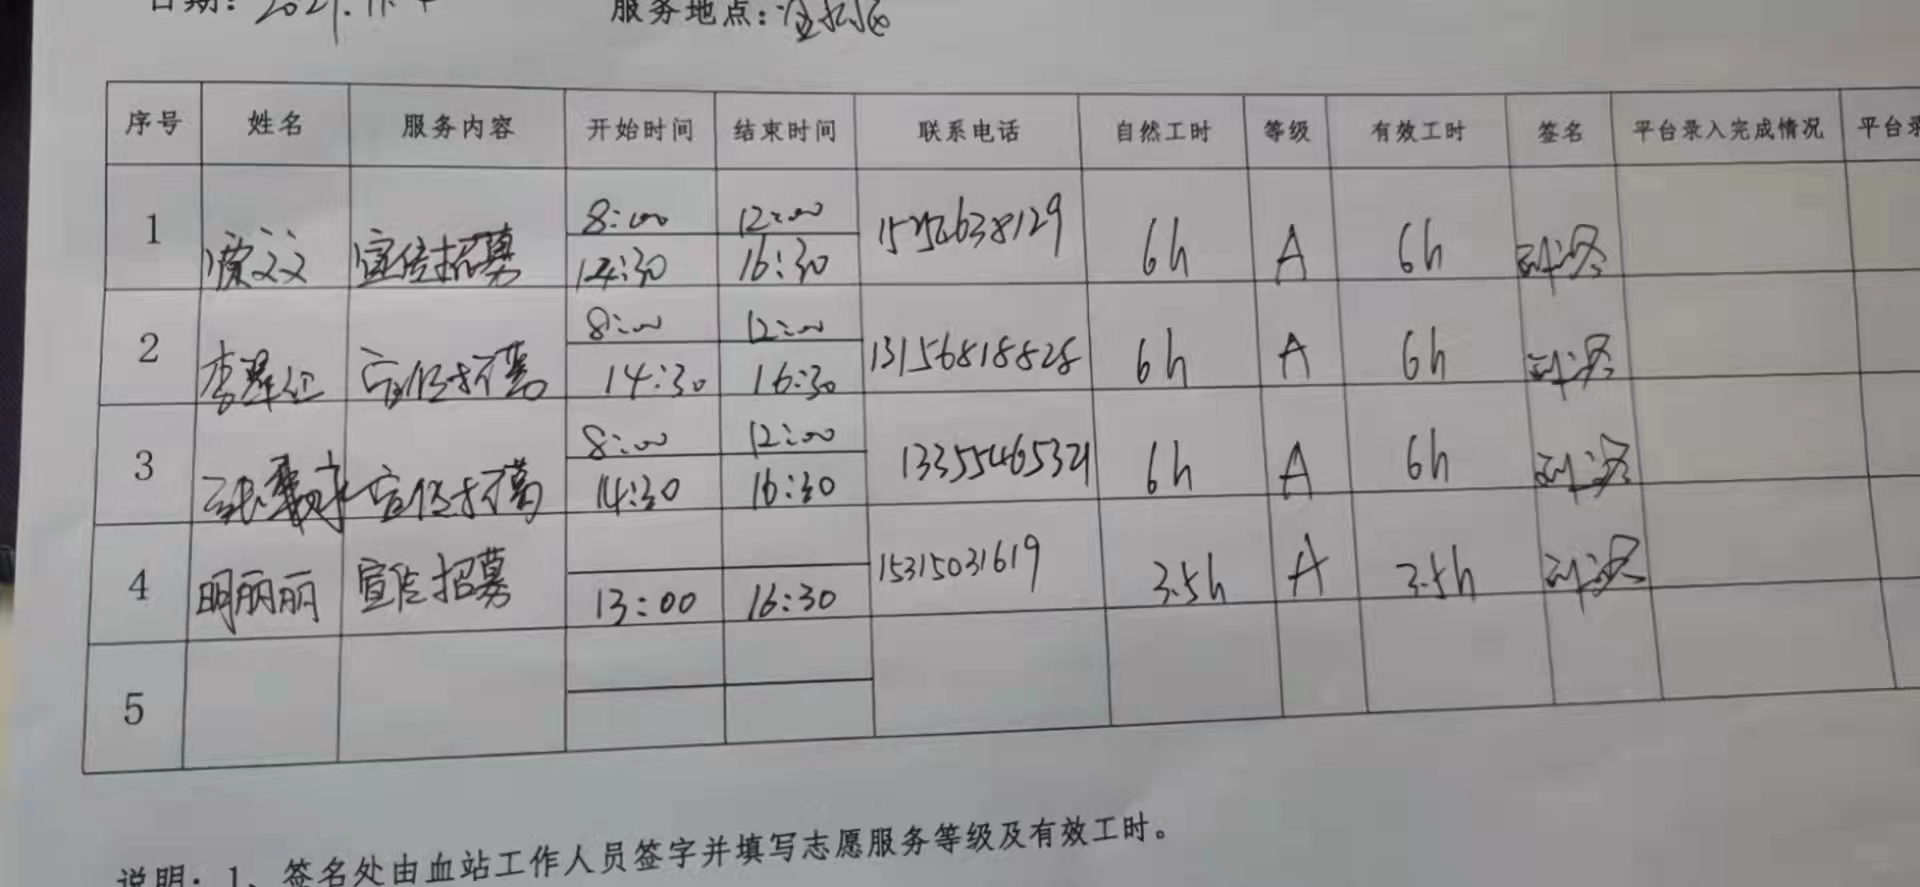 日期：2021.11.
服务地点：
序号 姓名 服务内容 开始时间 结束时间 联系电话 自然工时 等级 有效工时 签名 平台录入完成情况 平台录
1 宣传招募 8:00 12:00 15256638129 6h A 6h
14:30 16:30
2 宣传招募 8:00 12:00 13156818828 6h A 6h
14:30 16:30
3 宣传招募 8:00 12:00 13355465321 6h A 6h
14:30 16:30
4 明丽丽 宣传招募 15315031619 3.5h A 3.5h
13:00 16:30
5
说明：1、签名处由血站工作人员签字并填写志愿服务等级及有效工时。